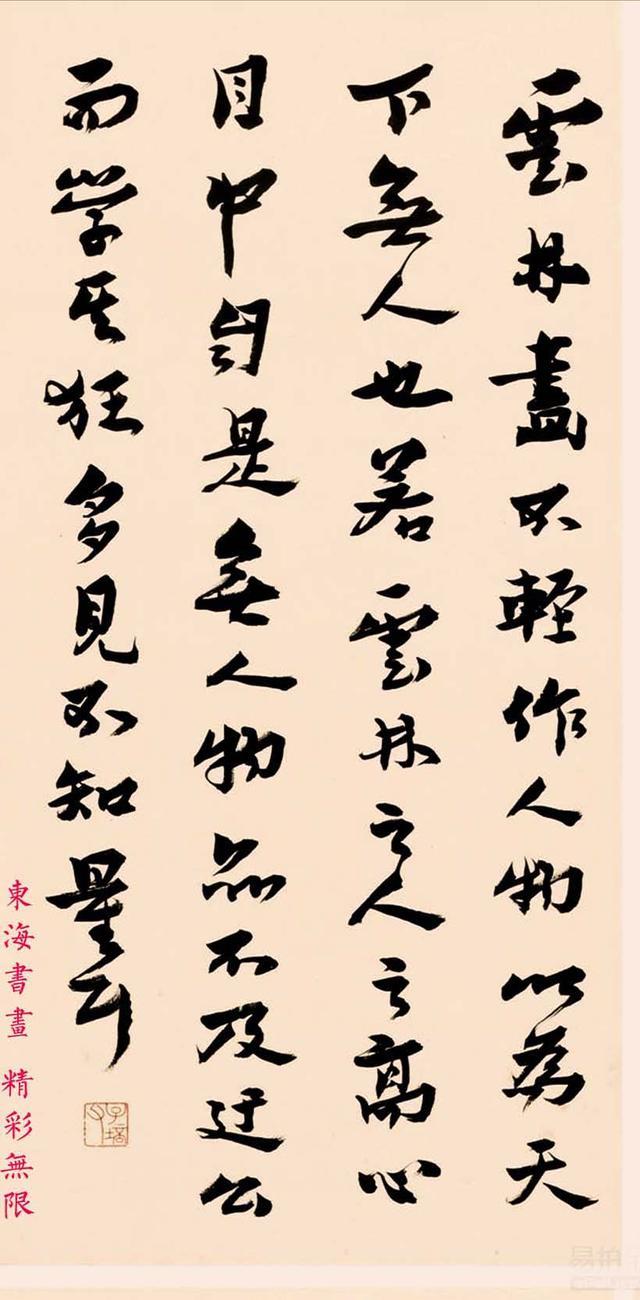 雲林畫不輕作人物以為天
下無人也若雲林之人之高心
目中自是無人物品不及迂公
而學其狂多見不知量耳
東海書畫 精彩無限
易拍